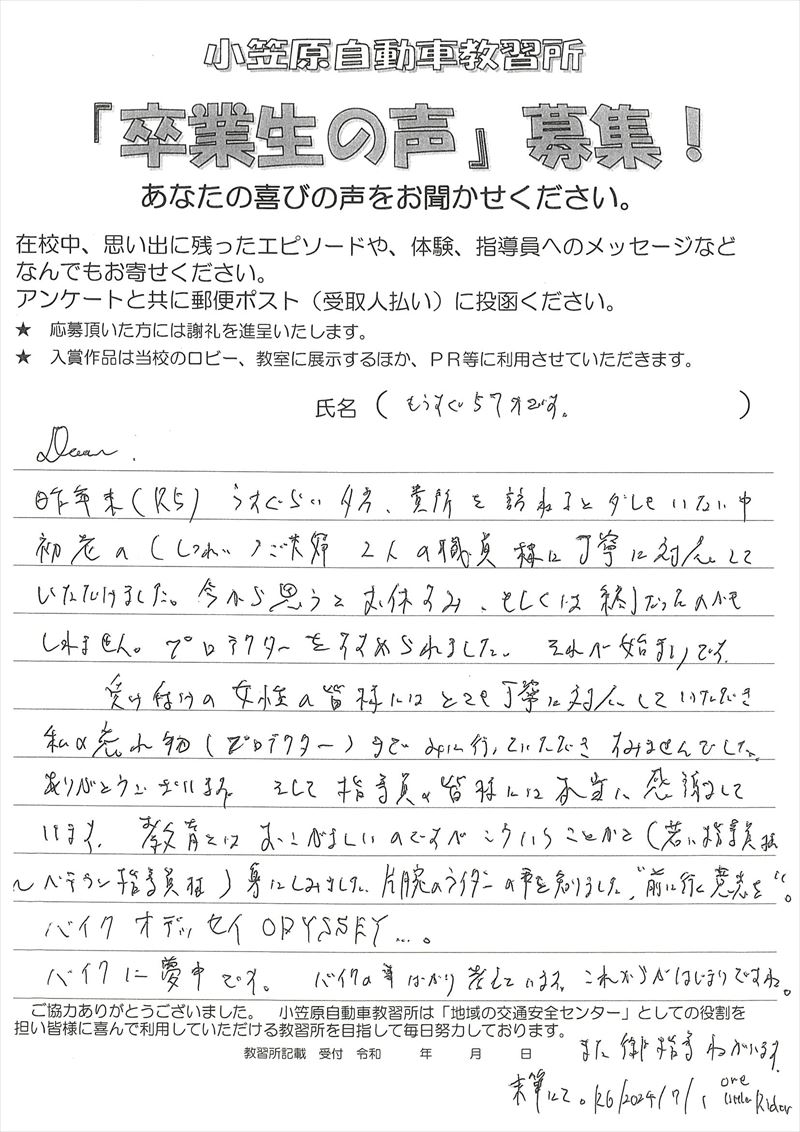 小笠原自動車教習所
『卒業生の声』募集!
あなたの喜びの声をお聞かせください。
在校中、思い出に残ったエピソードや、体験、指導員へのメッセージなど
なんでもお寄せください。
アンケートと共に郵便ポスト(受取人払い)に投函ください。
★ 応募頂いた方には謝礼を進呈いたします。
★ 入賞作品は当校のロビー、教室に展示するほか、PR等に利用させていただきます。
氏名 ( もうすぐ57才です。 )
Dear.
昨年末(R5) うすぐらい夕方、貴所を訪ねると少しもいない中
初老の(しつれい)ご夫婦 2人の職員様に丁寧に対応して
いただけました。今から思うとお休み、もしくは終了だったのかも
しれません。プロテクターをすすめられました。それが始まりです。
受け付けの女性の皆様にはとても丁寧に対応していただき
私の忘れ物(プロテクター)までみに行っていただきすみませんでした。
ありがとうございます。そして指導員の皆様には本当に感謝して
います。教育とはおこがましいのですがこういうことかと(若い指導員様
〜ベテラン指導員様)身にしみました。片腕のライダーの事を知りました。"前に行く意志を"。
バイク オデッセイ ODYSSEY...。
バイクに夢中です。 バイクの事ばかり考えています。これからがはじまりですね。
ご協力ありがとうございました。 小笠原自動車教習所は「地域の交通安全センター」としての役割を
担い皆様に喜んで利用していただける教習所を目指して毎日努力しております。
教習所記載 受付 令和 年 月 日
また御指導ねがいます。
末筆にて。R6/2024/7/1 one little Rider